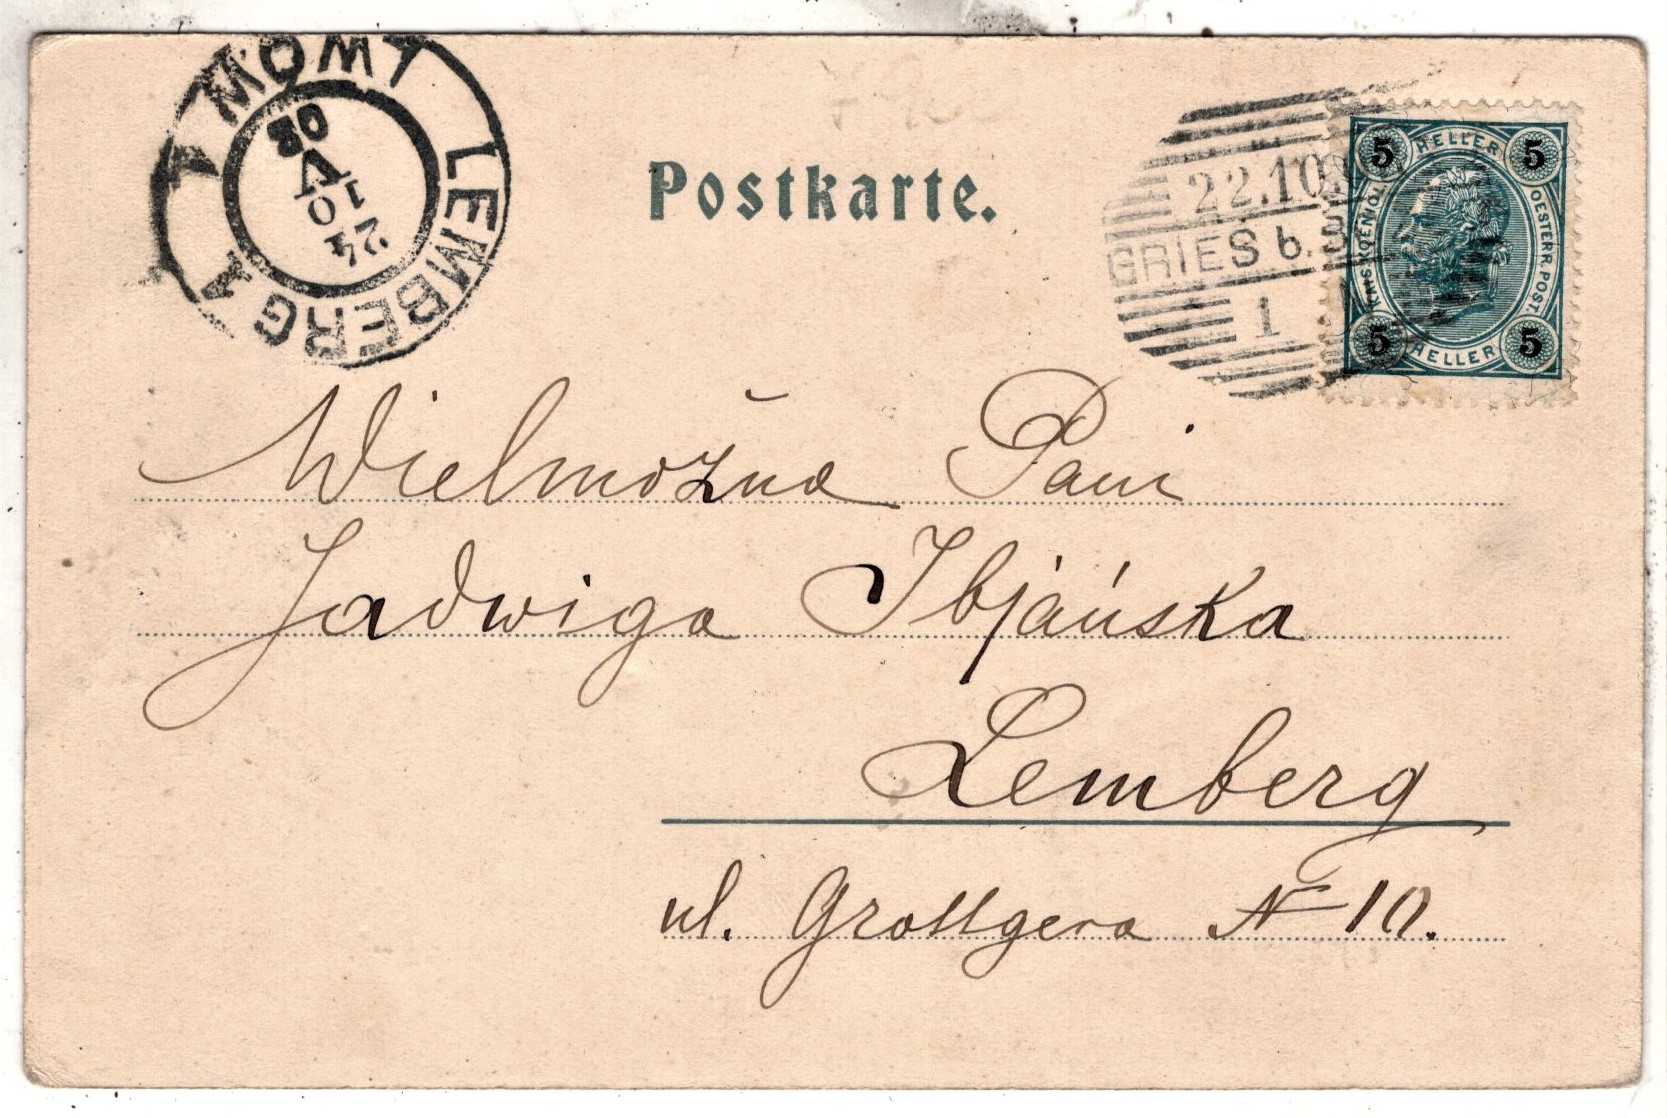 LWÓW 1
LEMBERG 1
24
10
V
02
Postkarte.
22.10.
GRIES b. B
1
5 HELLER 5
KAIS. KOENIGL. OESTERR. POST.
5 HELLER 5
Wielmożna Pani
Jadwiga Ibjańska
Lemberg
ul. Grottgera N 10.